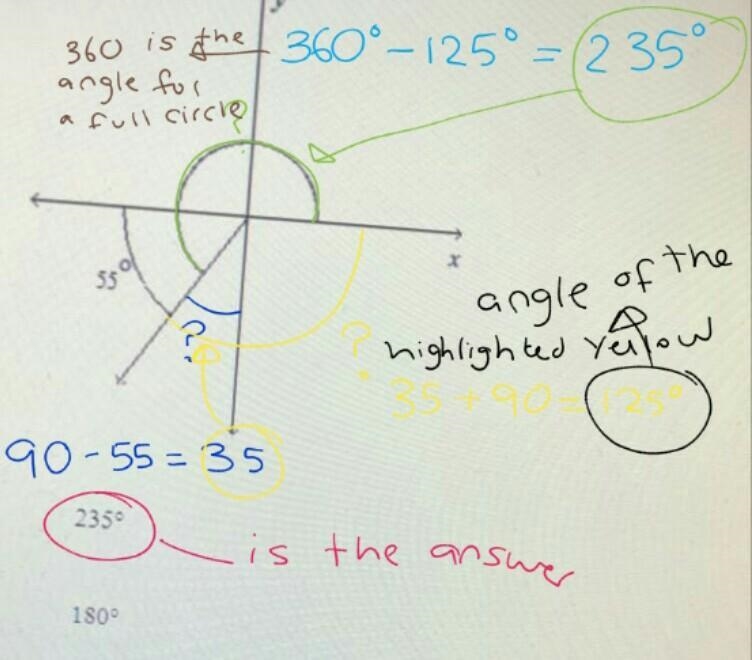 y
360 is the
angle for
a full circle
360° - 125° = 235°
?
x
55°
?
?
angle of the
highlighted yellow
35 + 90 = 125°
90 - 55 = 35
235°
is the answer
180°